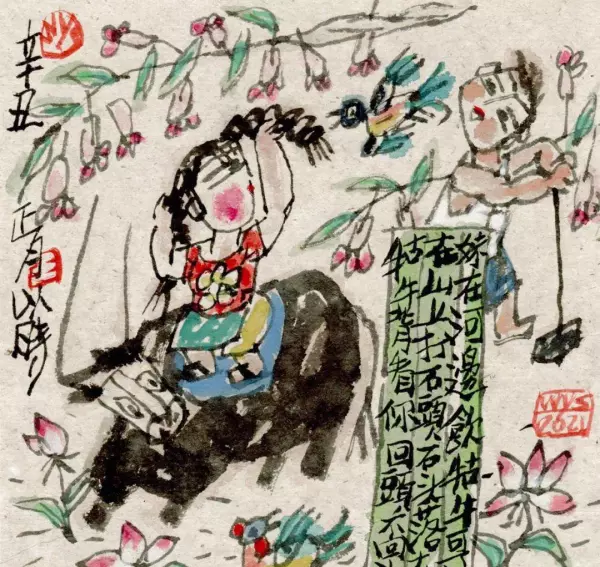 妹在河邊飲牯牛
在山上打石頭石头落
牯牛背看你回頭不回
辛丑
正月
2021